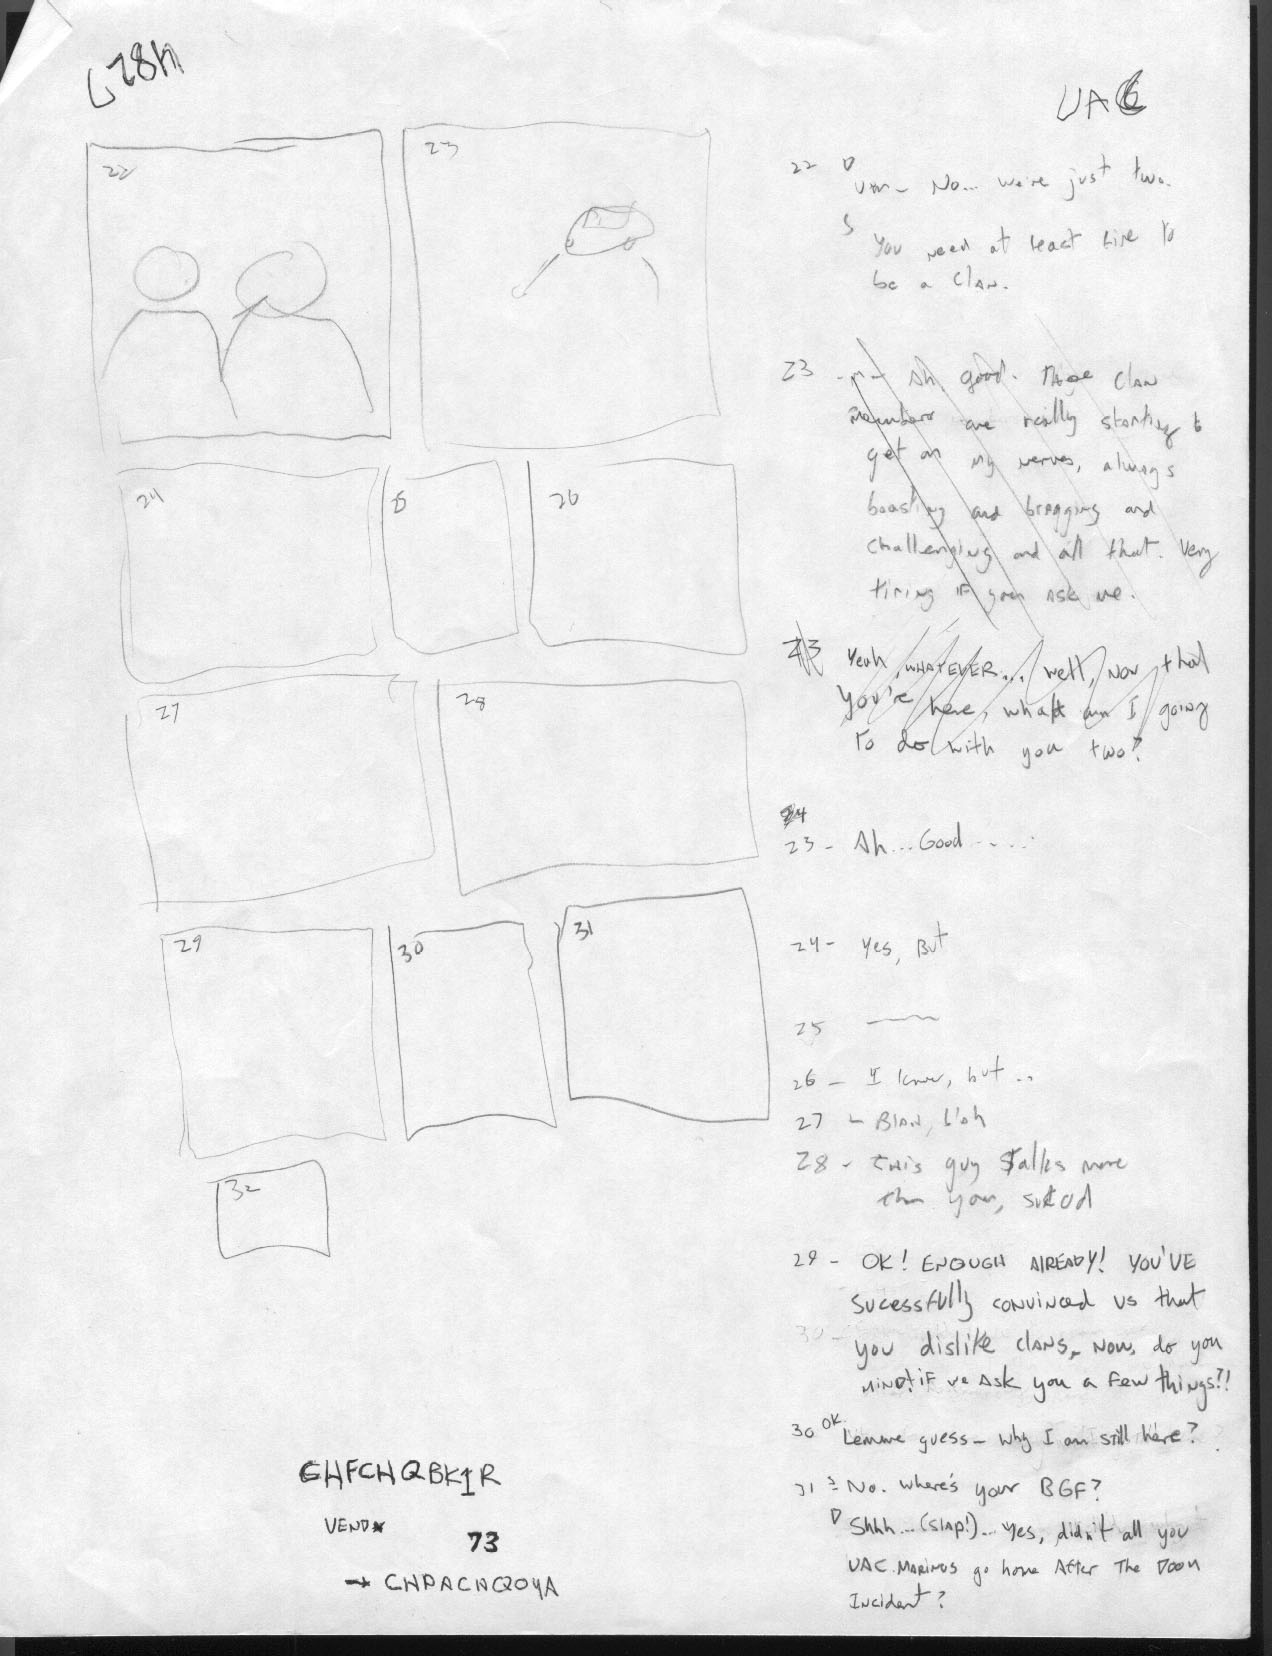 UAC
22
23
24
25
26
27
28
29
30
31
32
22 D Um- No... we're just two.
S You need at least five to
be a clan.
23 - Ah, good. These clan
members are really starting to
get on my nerves, always
boasting and bragging and
challenging and all that. Very
tiring if you ask me.
23 Yeah, WHATEVER... well, now that
you're here, what am I going
to do with you two?
24
23- Ah... Good .....
24- Yes, But
25
26- I know, but ..
27 - Blah, blah
28 - this guy talks more
than you,
29 - OK! ENOUGH AlREADY! YOU'VE
sucessfully convinced us that
30-
you dislike clans, Now, do you
MIND! if we Ask you a few things?!
30 OK. Lemme guess- why I am still here?
31 S No. Where's your BGF?
D Shhh... (slap!)... Yes, didn't all you
UAC Marines go home After The Doom
Incident?
GHFCHQBK1R
VEND
73
→ CHPACHQOYA